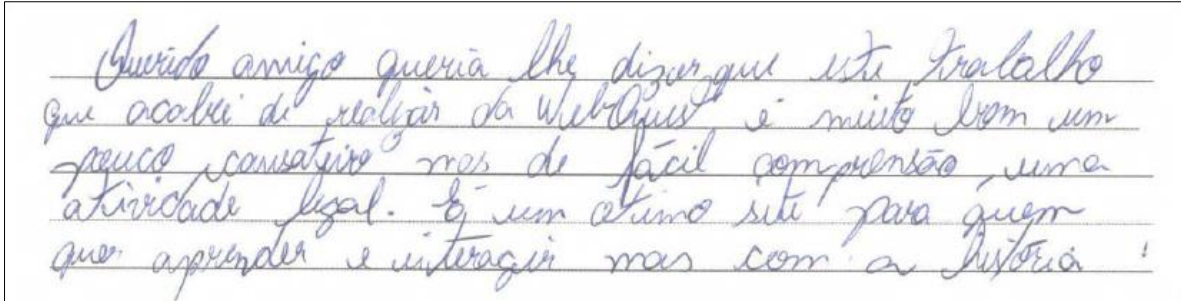 Querido amigo queria lhe dizer que este trabalho
que acabei de realizar da WebQuest é muito bom um
pouco cansativo mas de fácil comprensão, uma
atividade legal. É um otimo site para quem
quer aprender e interagir mas com a história !